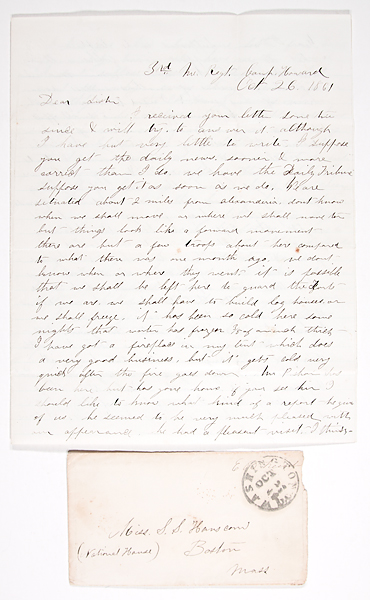 3rd Me. Regt. Camp Howard
Oct 26 1861
Dear
I received your letter some time
since & will try to answer it although
I have but very little to write I suppose
you get the daily news sooner & more
correct than I do. we have the Daily Tribune
suppose you get it as soon as we do. We are
situated about 2 miles from alexandria dont know
when we shall move or where we shall move to
but things look like a forward movement
there are but a few troops about here compared
to what there was one month ago. we dont
know when or where they went it is possible
that we shall be left here to guard the
if we are we shall have to build log houses or
we shall freeze. it has been so cold here some
nights that water has frozen inch thick
I have got a fireplace in my tent which does
a very good business. but it gets cold very
quick after the fire goes down. Mr
been here but has gone home if you see him I
should like to know what kind of a report he gives
of us. he seemed to be very much pleased with
our appearance he had a pleasant visit I think
WASHINGTON
OCT
Miss. S. S. Hanscom
(National House) Boston
Mass